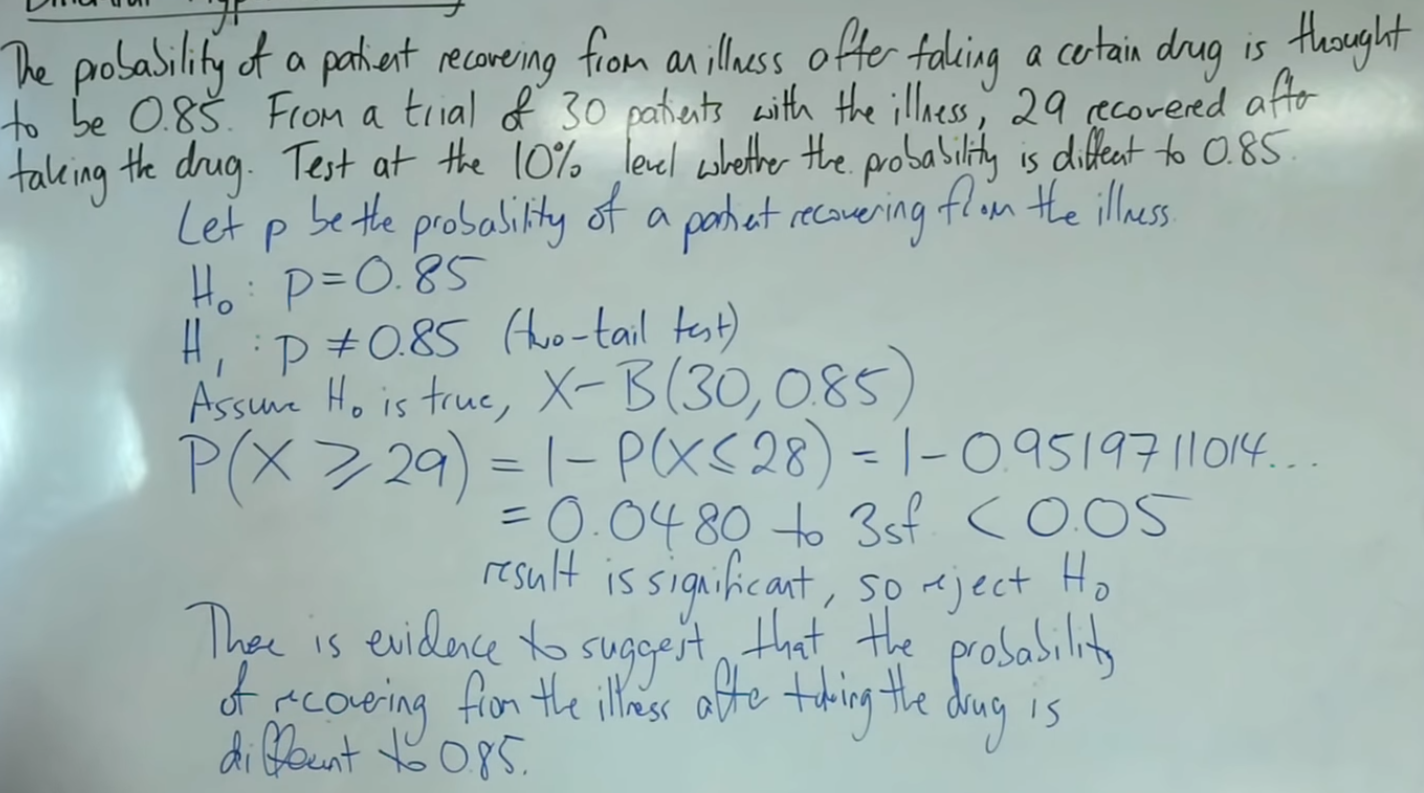 The probability of a patient recovering from an illness after taking a certain drug is thought
to be 0.85. From a trial of 30 patients with the illness, 29 recovered after
taking the drug. Test at the 10% level whether the probability is different to 0.85.
Let p be the probability of a patient recovering from the illness.
H₀ : p=0.85
H₁ : p≠0.85 (two-tail test)
Assume H₀ is true, X~B(30,0.85)
P(X ⩾ 29) = 1 - P(X ≤ 28) = 1 - 0.9519711014...
= 0.0480 to 3sf < 0.05
result is significant, so reject H₀
There is evidence to suggest that the probability
of recovering from the illness after taking the drug is
different to 0.85.